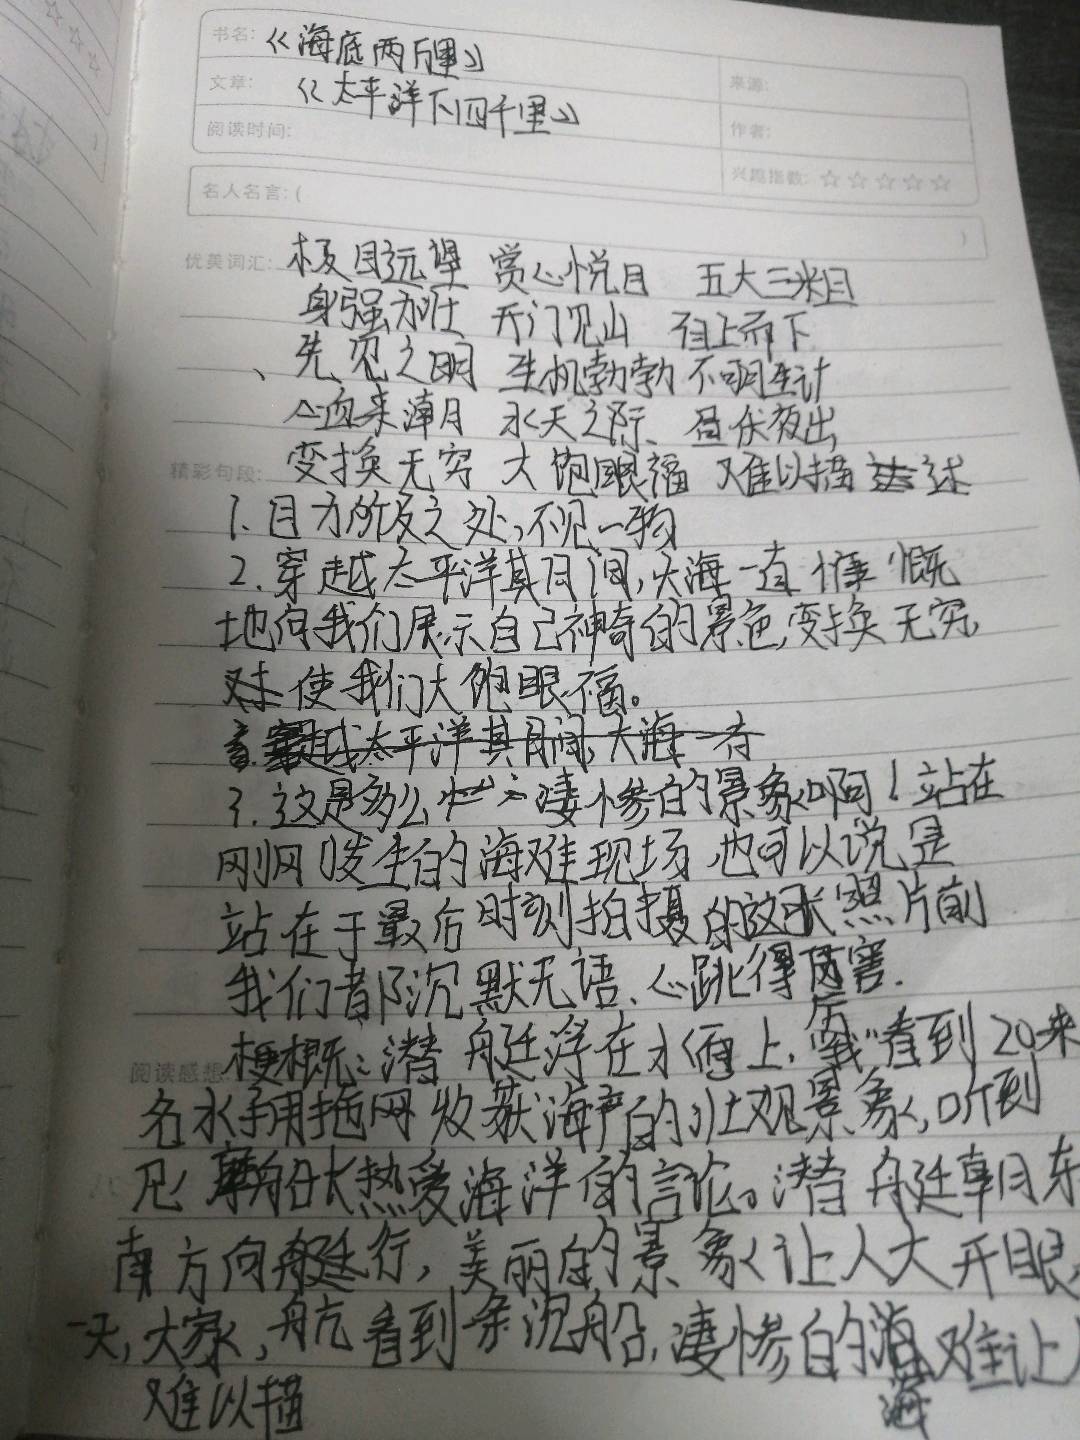 书名: 《海底两万里》
来源:
文章: 《太平洋下四千里》
作者:
阅读时间:
兴趣指数: ☆☆☆☆☆
名人名言: ( )
优美词汇: 极目远望 赏心悦目 五大三粗
身强力壮 开门见山 自上而下
、先见之明 生机勃勃 不明生计
心血来潮 水天之际、昼伏夜出
精彩句段: 变换无穷 大饱眼福 难以描述
1. 目力所及之处,不见一物
2. 穿越太平洋其间,大海一直慷慨
地向我们展示自己神奇的景色,变换无穷,
使我们大饱眼福。
穿越太平洋其间,大海一直
3. 这是多么凄惨的景象啊!站在
刚刚发生的海难现场,也可以说是
站在于最后时刻拍摄的这张照片前
我们都沉默无语、心跳得厉害.
阅读感想: 梗概:潜艇浮在水面上,"我"看到20来
名水手用拖网收获海产的壮观景象,听到
尼摩船长热爱海洋的言论。潜艇朝东
南方向航行,美丽的景象让人大开眼
一天,大家,航看到一条沉船,凄惨的海难让人
难以描 海